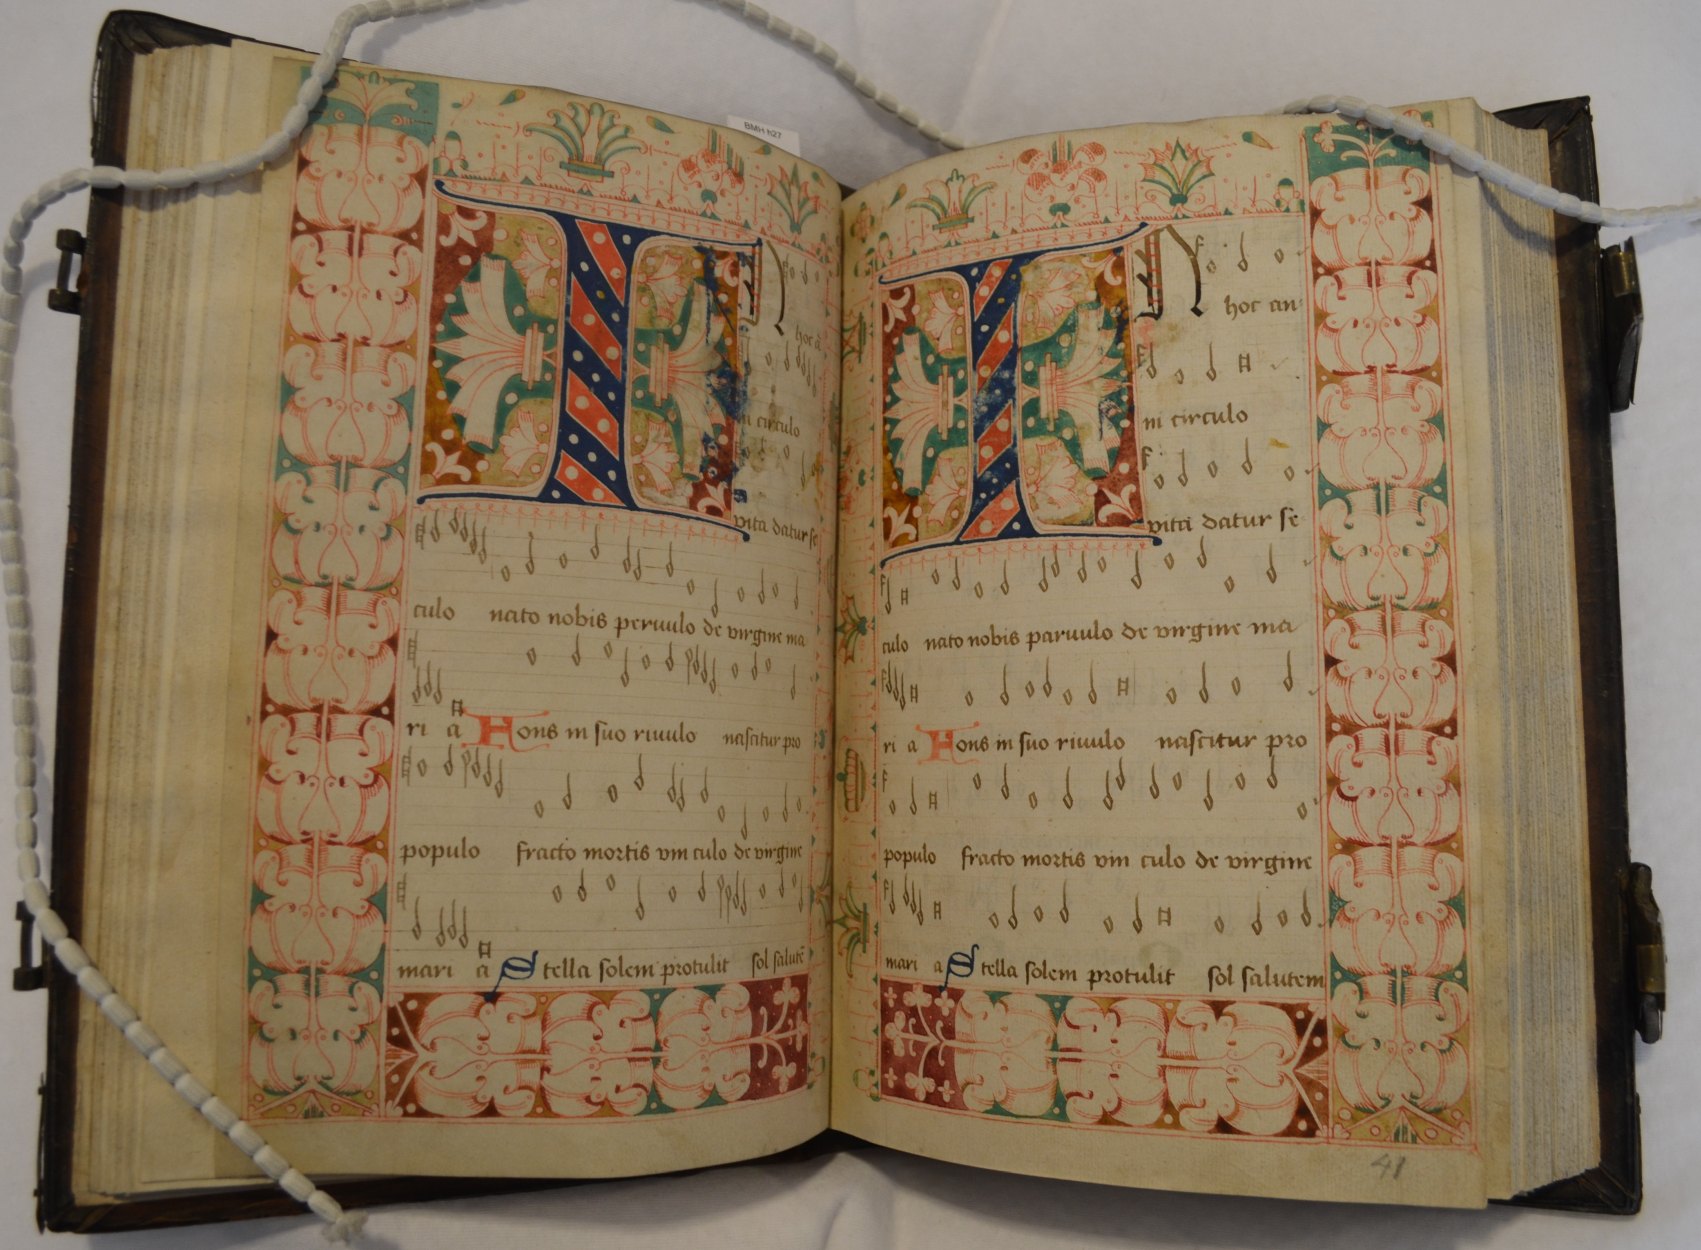 BMH h27
IN
hoc ā
ni circulo
vita datur se
culo nato nobis peruulo de virgine ma
ri a Fons in suo riuulo nascitur pro
populo fracto mortis vin culo de virgine
mari a Stella solem protulit sol salutē
IN
hoc an
ni circulo
vita datur se
culo nato nobis paruulo de virgine ma
ri a Fons in suo riuulo nascitur pro
populo fracto mortis vin culo de virgine
mari a Stella solem protulit sol salutem
41